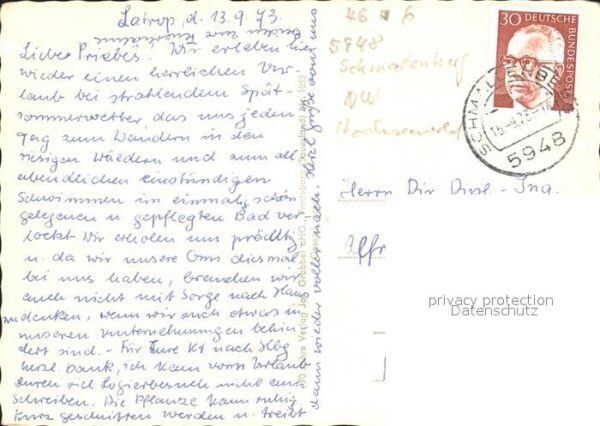 Latrop, d. 13.9.73.
Liebe Priebes! Wir erleben hier
wieder einen herrlichen Ur-
laub bei strahlendem Spät-
sommerwetter das uns jeden
Tag zum Wandern in den
riesigen Wäldern und zum all-
abendlichen einstündigen
Schwimmen im einmalig schön
gelegenen u. gepflegten Bad ver
lockt. Wir erholen uns prächtig
u. da wir unsere Omi diesmal
bei uns haben, brauchen wir
auch nicht mit Sorge nach Haus
zu denken, wenn wir auch etwas in
unseren Unternehmungen behin
dert sind. - Für Eure Kt nach Hbg
herzl. Dank, ich kam vorm Urlaub
durch viel Logierbesuch nicht zum
Schreiben. Die Pflanze kann ruhig
kurz geschnitten werden u. treibt
dann wieder voller nach. Herzl. Grüße von uns
beiden
46 6
5948
Schmallenberg
NW
Hochsauerland
30 DEUTSCHE
BUNDESPOST
SCHMALLENBERG
5948
Herrn Dir Dipl.-Ing.
privacy protection
Datenschutz
Verlag Jos. Grobbel oHG, Fredeburg (Sauerland)